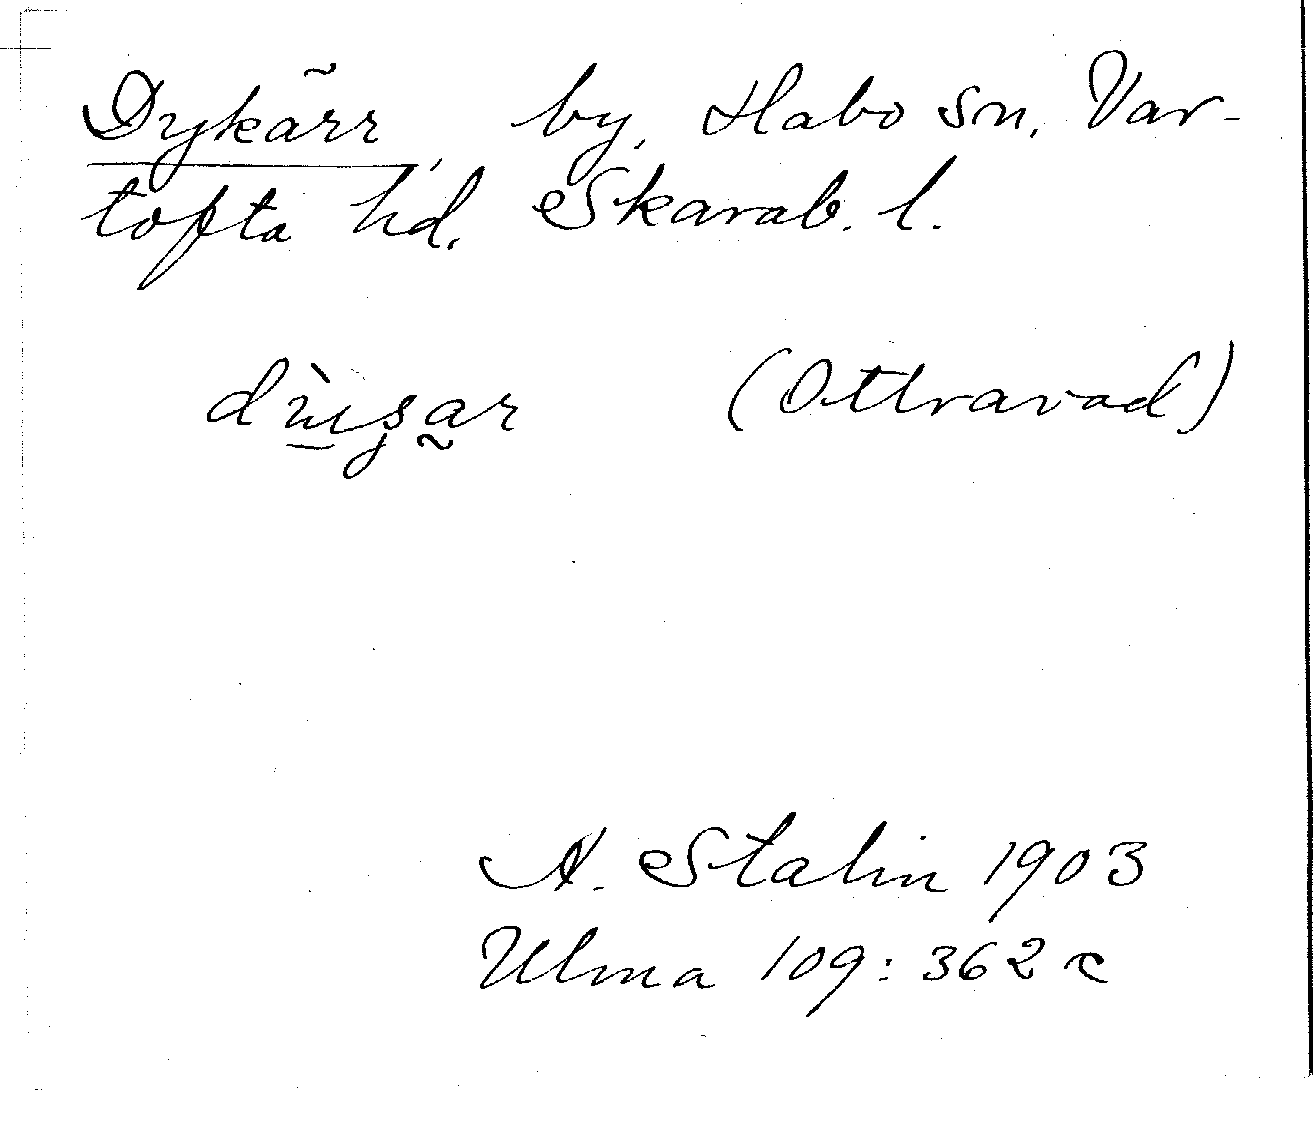 Dykärr, by, Habo sn, Var-
tofta hd. Skarab. l.
(Ottravad)
A. Stalin 1903
Ulma 109: 362 c